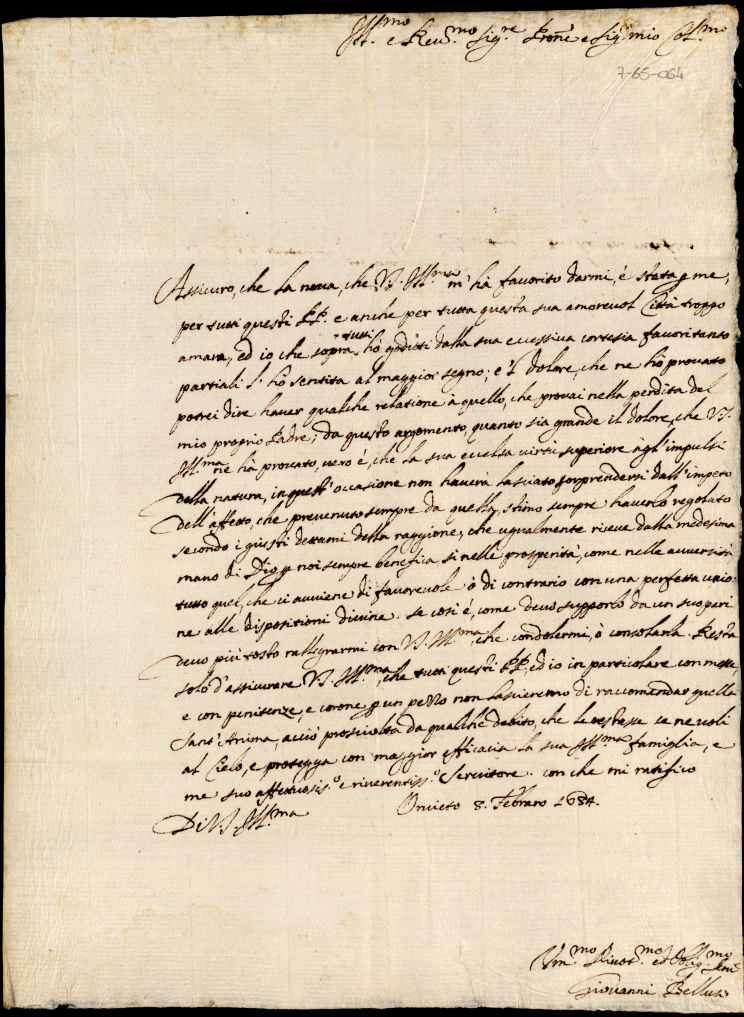 Ill.mo e Reu.mo Sig.re Prone e Sig. mio Col.mo
7-65-064
Assicuro, che la noua, che V.S. Ill.ma m'hà fauorito darmi, è stata p me,
per tutti questi PP. e anche per tutta questa sua amoreuol Città troppo
amara, ed io che sopra tutti hò goduti dalla sua eccessiva cortesia fauori tanto
partiali l'hò sentita al maggior segno; e 'l dolore, che ne hò prouato
potrei dire hauer qualche relatione à quello, che prouai nella perdita del
mio proprio Padre; da questo argomento, quanto sia grande il dolore, che V.S.
Ill.ma ne hà prouato, uero è, che la sua eccelsa uirtù superiore àgl'impulsi
della natura, in quest'occasione non hauerà lasciato sorprendersi dall'impeto
dell'affetto, che preuenuto sempre da quella, stimo sempre hauerlo regolato
secondo i giusti dettami della raggione, che ugualmente riceue dalla medesima
mano di Dio p noi sempre benefica sì nelle prosperità, come nelle auuersità
tutto quel, che ci auuiene di fauoreuole ò di contrario con una perfetta unio-
ne alle dispositioni diuine. se così è, come deuo supporlo da un suo pari
deuo più tosto rallegrarmi con V.S. Ill.ma, che condolermi, ò consolarla. Resta
solo d'assicurare V.S. Ill.ma, che tutti questi PP. ed io in particolare con messe,
e con penitenze, e corone p un pezzo non lasciaremo di raccomandar quella
Sant'Anima, acciò prosciolta da qualche debito, che le restasse se ne uoli
al Cielo, e protegga con maggior efficacia la sua Ill.ma famiglia, e
me suo affettuosis.o e riuerentiss.o Seruitore. con che mi ratifico
Di V.S. Ill.ma Oruieto 8. Febraro 1684.
Vm.mo Diuot.mo ed Oblig.mo Seru.
Giouanni